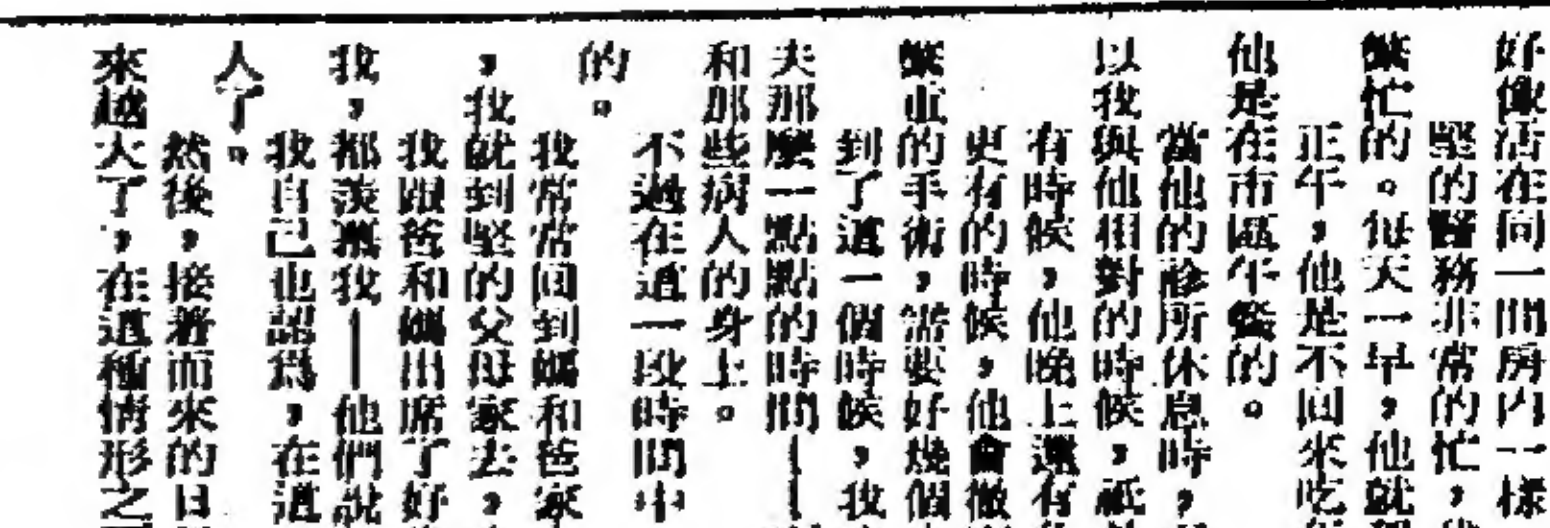 好像活在同一間房內一樣
堅的醫務非常的忙，
繁忙的。每天一早，他就
正午，他是不回來吃
他是在市區午餐的。
當他的診所休息時，
以我與他相對的時候，祗
有時候，他晚上還有
更有的時候，他會做
繁重的手術，需要好幾個
到了這一個時候，我
夫那麼一點點的時間——
和那些病人的身上。
不過在這一段時間中
的。
我常常回到媽和爸家
，我就到堅的父母家去，
我跟爸和媽出席了好
我，都羨慕我——他們說
我自己也認爲，在這
人了。
然後，接着而來的日
來越大了，在這種情形之